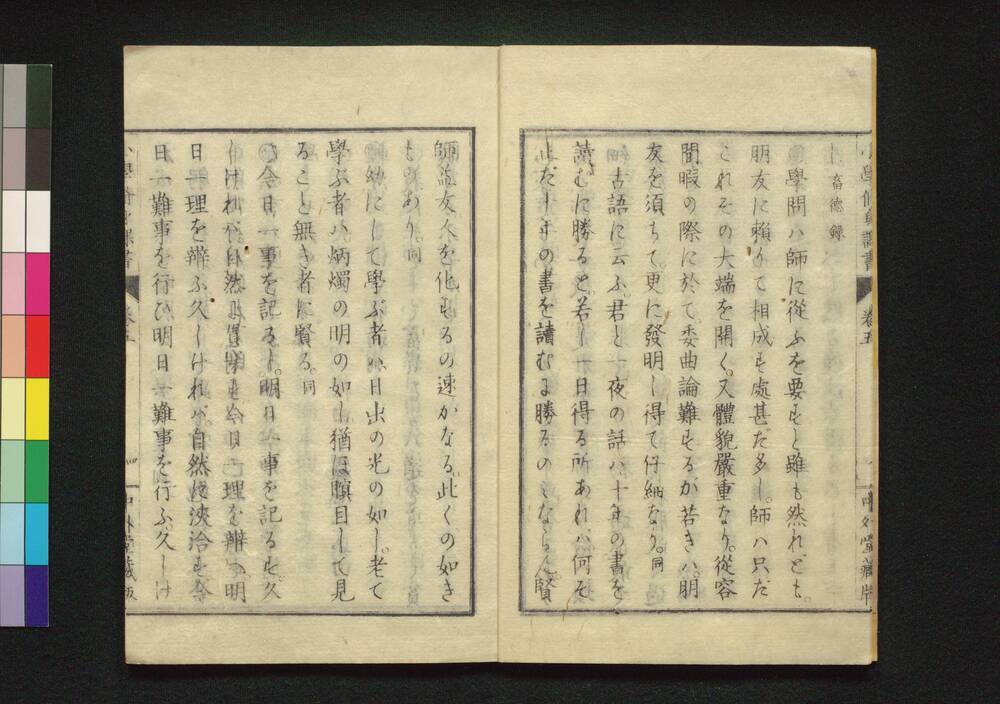 小學修身課書 卷五 中外堂藏版
畜德錄
學問ハ師に從ふを要すと雖も然れども。
朋友に賴りて相成す處甚だ多し。師ハ只だ
これその大端を開く。又體貌嚴重なり。從容
閒暇の際に於て、委曲論難するが若きハ。朋
友を須ちて。更に發明し得て仔細なり。同
古語に云ふ。君と一夜の話ハ、十年の書を
讀むに勝ると。若し一日得る所あれハ、何そ
止だ十年の書を讀むに勝るのみならん。賢
師益友人を化するの速かなる。此くの如き
ものあり。同
幼にして學ぶ者ハ、日出の光の如し。老て
學ぶ者ハ炳燭の明の如し猶ほ瞑目して見
ること無き者に賢る。同
今日一事を記し。明日一事を記るす。久
しけれバ自然に貫穿す今日一理を辨へ。明
日一理を辨ふ久しけれバ自然に浹洽す今
日一難事を行ひ、明日一難事を行ふ。久しけ
小學修身課書 卷五 四 中外堂藏版